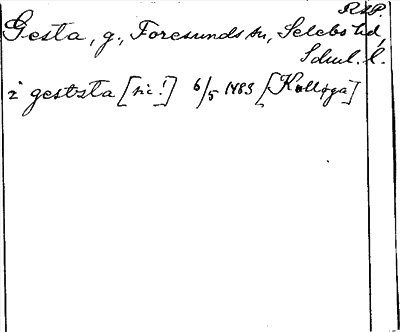 R.A.P.
Gesta, g., Foresunds sn, Selebo hd,
Sdml. l.
i gestzta [sic!] 6/5 1483 [Kolloga]